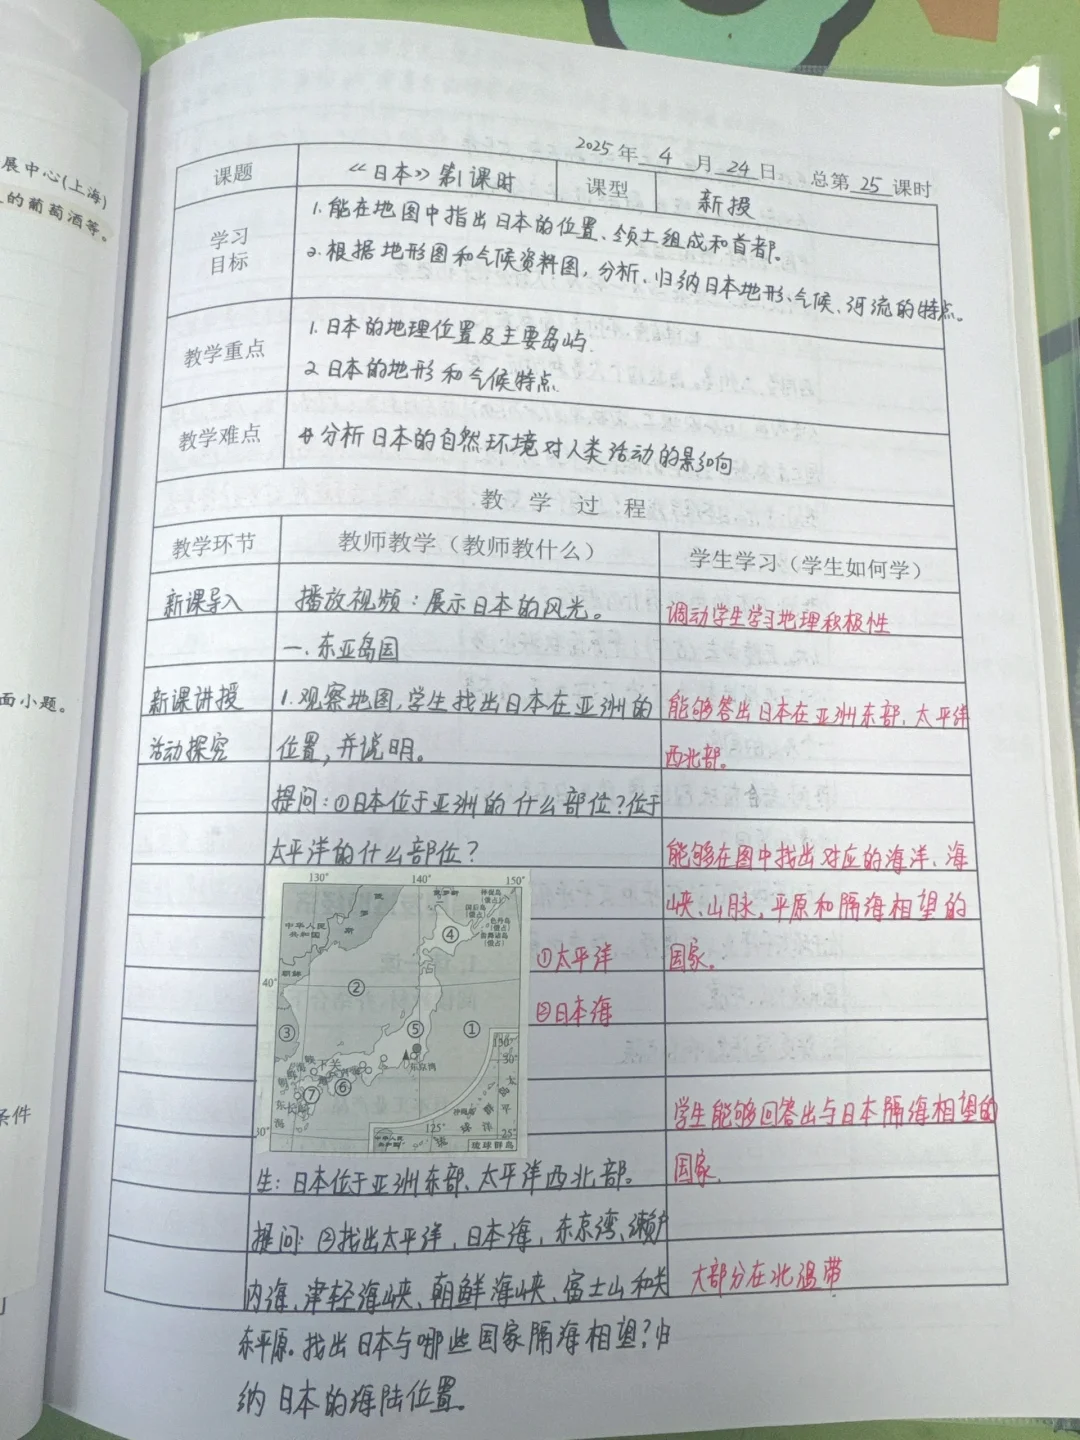 展中心(上海)
的葡萄酒等。
面小题。
条件
2025年 4 月 24 日 总第 25 课时
课题 《日本》第1课时 课型 新授
学习目标
1.能在地图中指出日本的位置、领土组成和首都。
2.根据地形图和气候资料图,分析、归纳日本地形、气候、河流的特点。
教学重点
1.日本的地理位置及主要岛屿.
2 日本的地形和气候特点.
教学难点
分析日本的自然环境对人类活动的影响
教 学 过 程
教学环节 教师教学(教师教什么) 学生学习(学生如何学)
新课导入 播放视频:展示日本的风光。 调动学生学习地理积极性
一.东亚岛国
新课讲授 1.观察地图,学生找出日本在亚洲的 能够答出日本在亚洲东部、太平洋
活动探究 位置,并说明。 西北部。
提问:①日本位于亚洲的什么部位?位于
太平洋的什么部位? 能够在图中找出对应的海洋、海
峡、山脉、平原和隔海相望的
国家。
130° 140° 150°
俄罗斯
中华人民共和国
朝鲜
40°
④
②
③
⑤
①
⑦
⑥
东京湾
下关
130°
30°
太平洋
125°
25°
30°
中华人民共和国
琉球群岛
①太平洋
②日本海
学生能够回答出与日本隔海相望的
国家.
生:日本位于亚洲东部、太平洋西北部。
提问:②找出太平洋,日本海,东京湾、濑户
内海、津轻海峡、朝鲜海峡、富士山和关 大部分在北温带
东平原。找出日本与哪些国家隔海相望?归
纳日本的海陆位置。